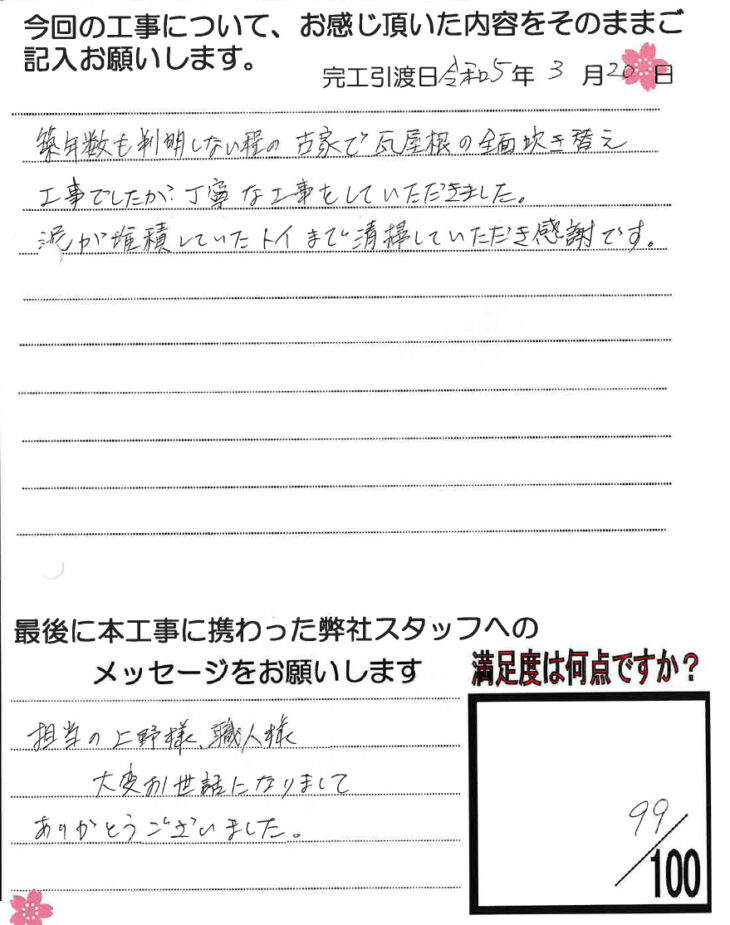 今回の工事について、お感じ頂いた内容をそのままご
記入お願いします。
完工引渡日 令和5年 3月20日
築年数も判明しない程の古家で瓦屋根の全面吹き替え
工事でしたが、丁寧な工事をしていただきました。
泥が堆積していたトイまで清掃していただき感謝です。
最後に本工事に携わった弊社スタッフへの
メッセージをお願いします
満足度は何点ですか?
担当の上野様、職人様
大変お世話になりまして
ありがとうございました。
99/100